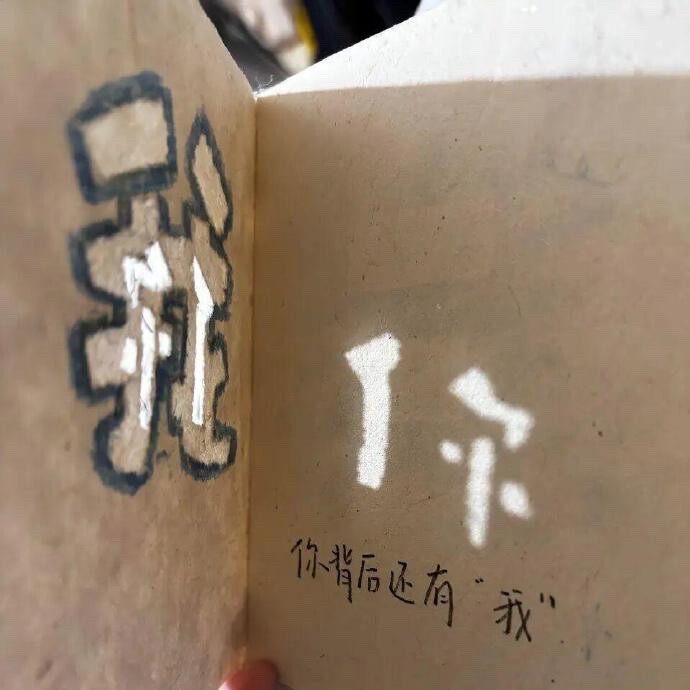 你
你背后还有“我”